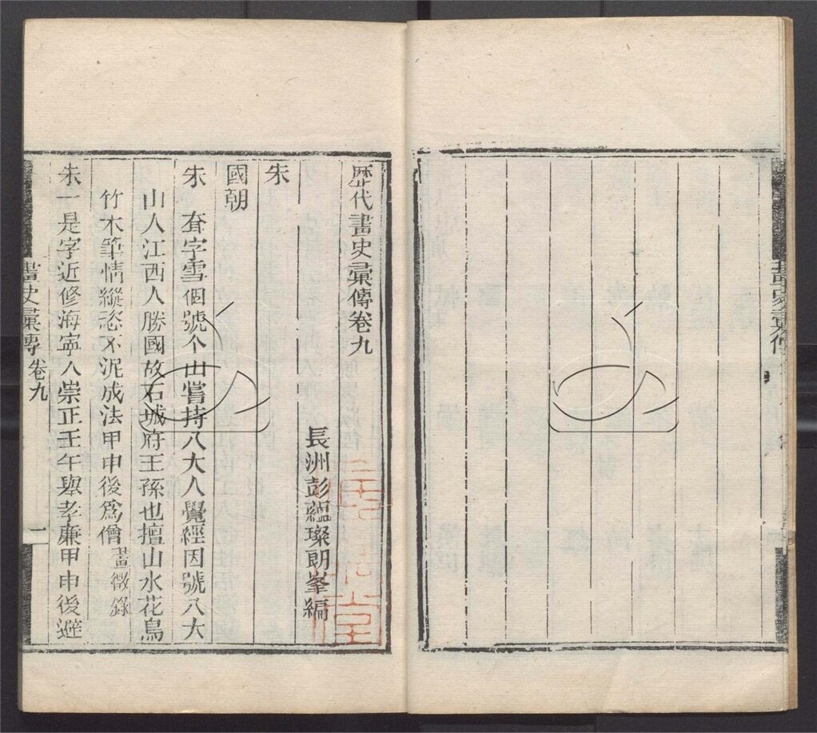 歷代畫史彙傳卷九
長洲彭蘊璨朗峯編
朱
國朝
朱耷字雪個號个山嘗持八大人覺經因號八大
山人江西人勝國故石城府王孫也擅山水花鳥
竹木筆情縱恣不泥成法甲申後爲僧畫徵錄
朱一是字近修海寧人崇正壬午舉孝廉甲申後避
畫史彙傳 卷九 一
畫史彙傳